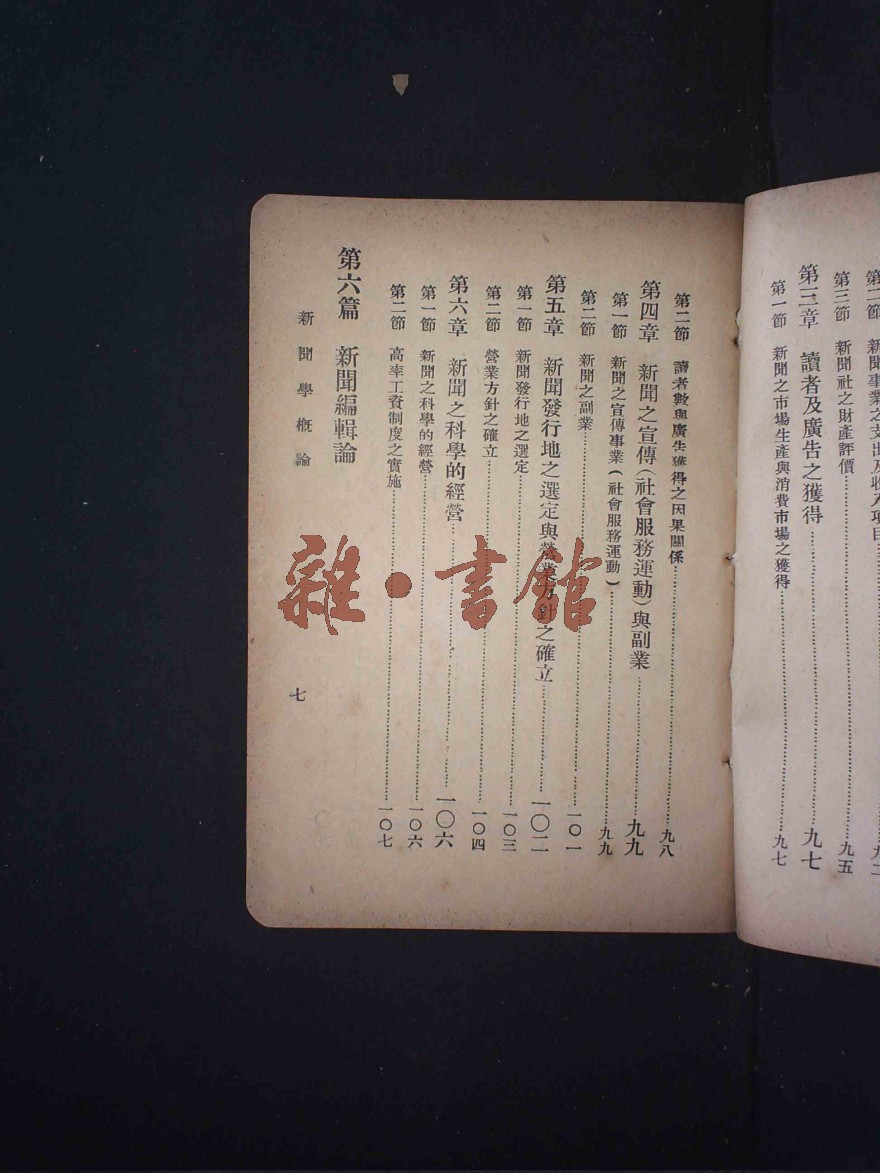 第二節 新聞事業之支出及收入項目……九二
第三節 新聞社之財產評價……九五
第三章 讀者及廣告之獲得……九七
第一節 新聞之市場生產與消費市場之獲得……九七
第二節 讀者數與廣告獲得之因果關係……九八
第四章 新聞之宣傳(社會服務運動)與副業……九九
第一節 新聞之宣傳事業(社會服務運動)……九九
第二節 新聞之副業……一〇一
第五章 新聞發行地之選定與營業方針之確立……一〇二
第一節 新聞發行地之選定……一〇三
第二節 營業方針之確立……一〇四
第六章 新聞之科學的經營……一〇六
第一節 新聞之科學的經營……一〇六
第二節 高率工資制度之實施……一〇七
第六篇 新聞編輯論
新聞學概論
七
雜·書館